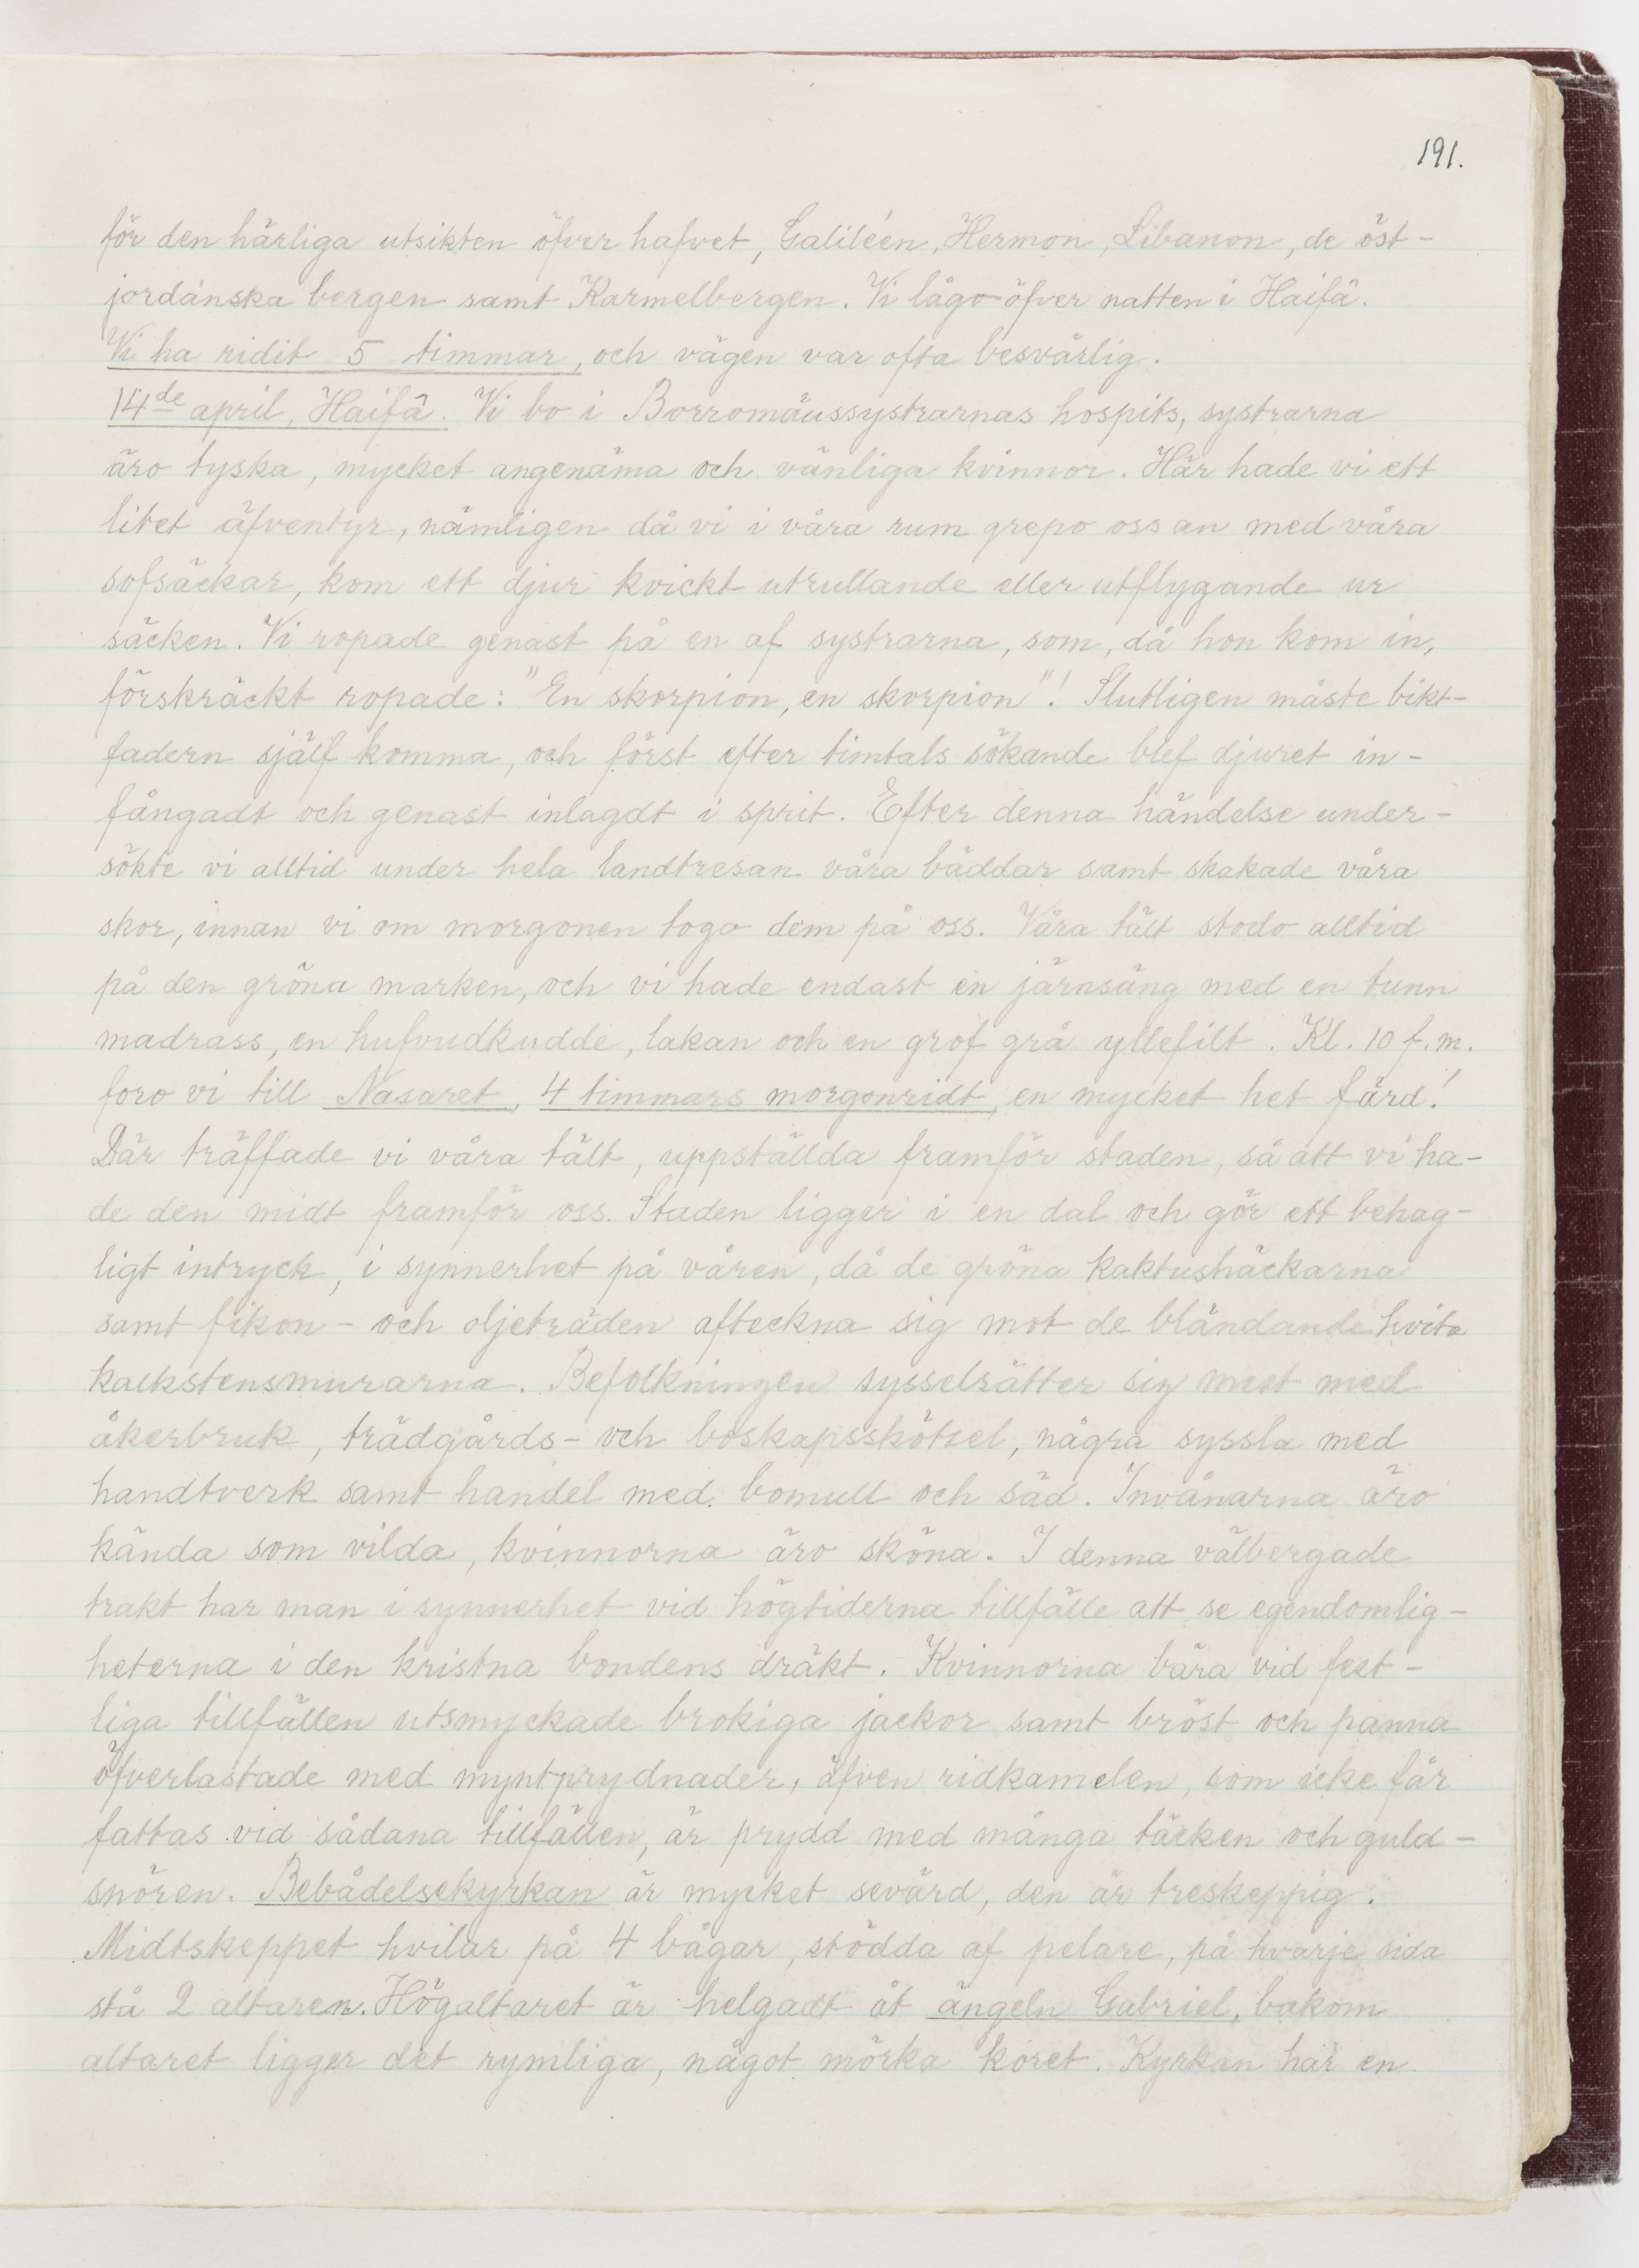 191.
för den härliga utsikten öfver hafvet, Galiléen, Hermon, Libanon, de öst-
jordanska bergen samt Karmelbergen. Vi lågo öfver natten i Haifâ.
Vi ha ridit 5 timmar, och vägen var ofta besvärlig.
14de april, Haifâ. Vi bo i Borromäussystrarnas hospits, systrarna
äro tyska, mycket angenäma och vänliga kvinnor. Här hade vi ett
litet äfventyr, nämligen då vi i våra rum grepo oss an med våra
sofsäckar, kom ett djur kvickt utrullande eller utflygande ur
säcken. Vi ropade genast på en af systrarna, som, då hon kom in,
förskräckt ropade: "En skorpion, en skorpion"! Slutligen måste bikt-
fadern själf komma, och först efter timtals sökande blef djuret in-
fångadt och genast inlagdt i sprit. Efter denna händelse under-
sökte vi alltid under hela landtresan våra bäddar samt skakade våra
skor, innan vi om morgonen togo dem på oss. Våra tält stodo alltid
på den gröna marken, och vi hade endast en järnsäng med en tunn
madrass, en hufvudkudde, lakan och en grof grå yllefilt. Kl. 10 f.m.
foro vi till Nasaret, 4 timmars morgonridt, en mycket het färd!
Där träffade vi våra tält, uppställda framför staden, så att vi ha-
de den midt framför oss. Staden ligger i en dal och gör ett behag-
ligt intryck, i synnerhet på våren, då de gröna kaktushäckarna
samt fikon- och oljeträden afteckna sig mot de bländande hvita
kalkstensmurarna. Befolkningen sysselsätter sig mest med
åkerbruk, trädgårds- och boskapsskötsel, några syssla med
handtverk samt handel med bomull och säd. Invånarna äro
kända som vilda, kvinnorna äro sköna. I denna välbergade
trakt har man i synnerhet vid högtiderna tillfälle att se egendomlig-
heterna i den kristna bondens dräkt. Kvinnorna bära vid fest-
liga tillfällen utsmyckade brokiga jackor samt bröst och panna
öfverlastade med myntprydnader, äfven ridkamelen, som icke får
fattas vid sådana tillfällen, är prydd med många täcken och guld-
snören. Bebådelsekyrkan är mycket sevärd, den är treskeppig.
Midtskeppet hvilar på 4 bågar, stödda af pelare, på hvarje sida
stå 2 altaren. Högaltaret är helgadt åt ängeln Gabriel, bakom
altaret ligger det rymliga, något mörka koret. Kyrkan har en